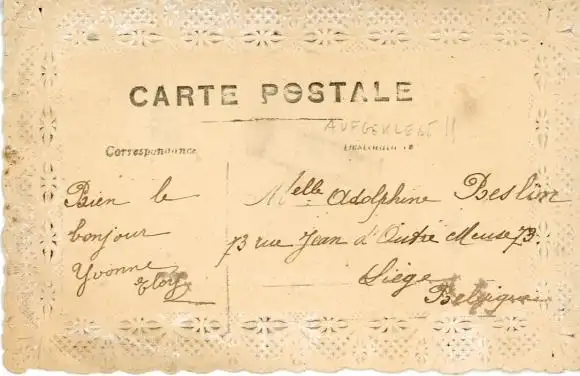 CARTE POSTALE
AUFGEKLEBT!!
Correspondance
Bien le
bonjour
Yvonne
Eloy
Melle Adolphine Beslin
73 rue Jean d'Outre Meuse 73.
Liège
Belgique